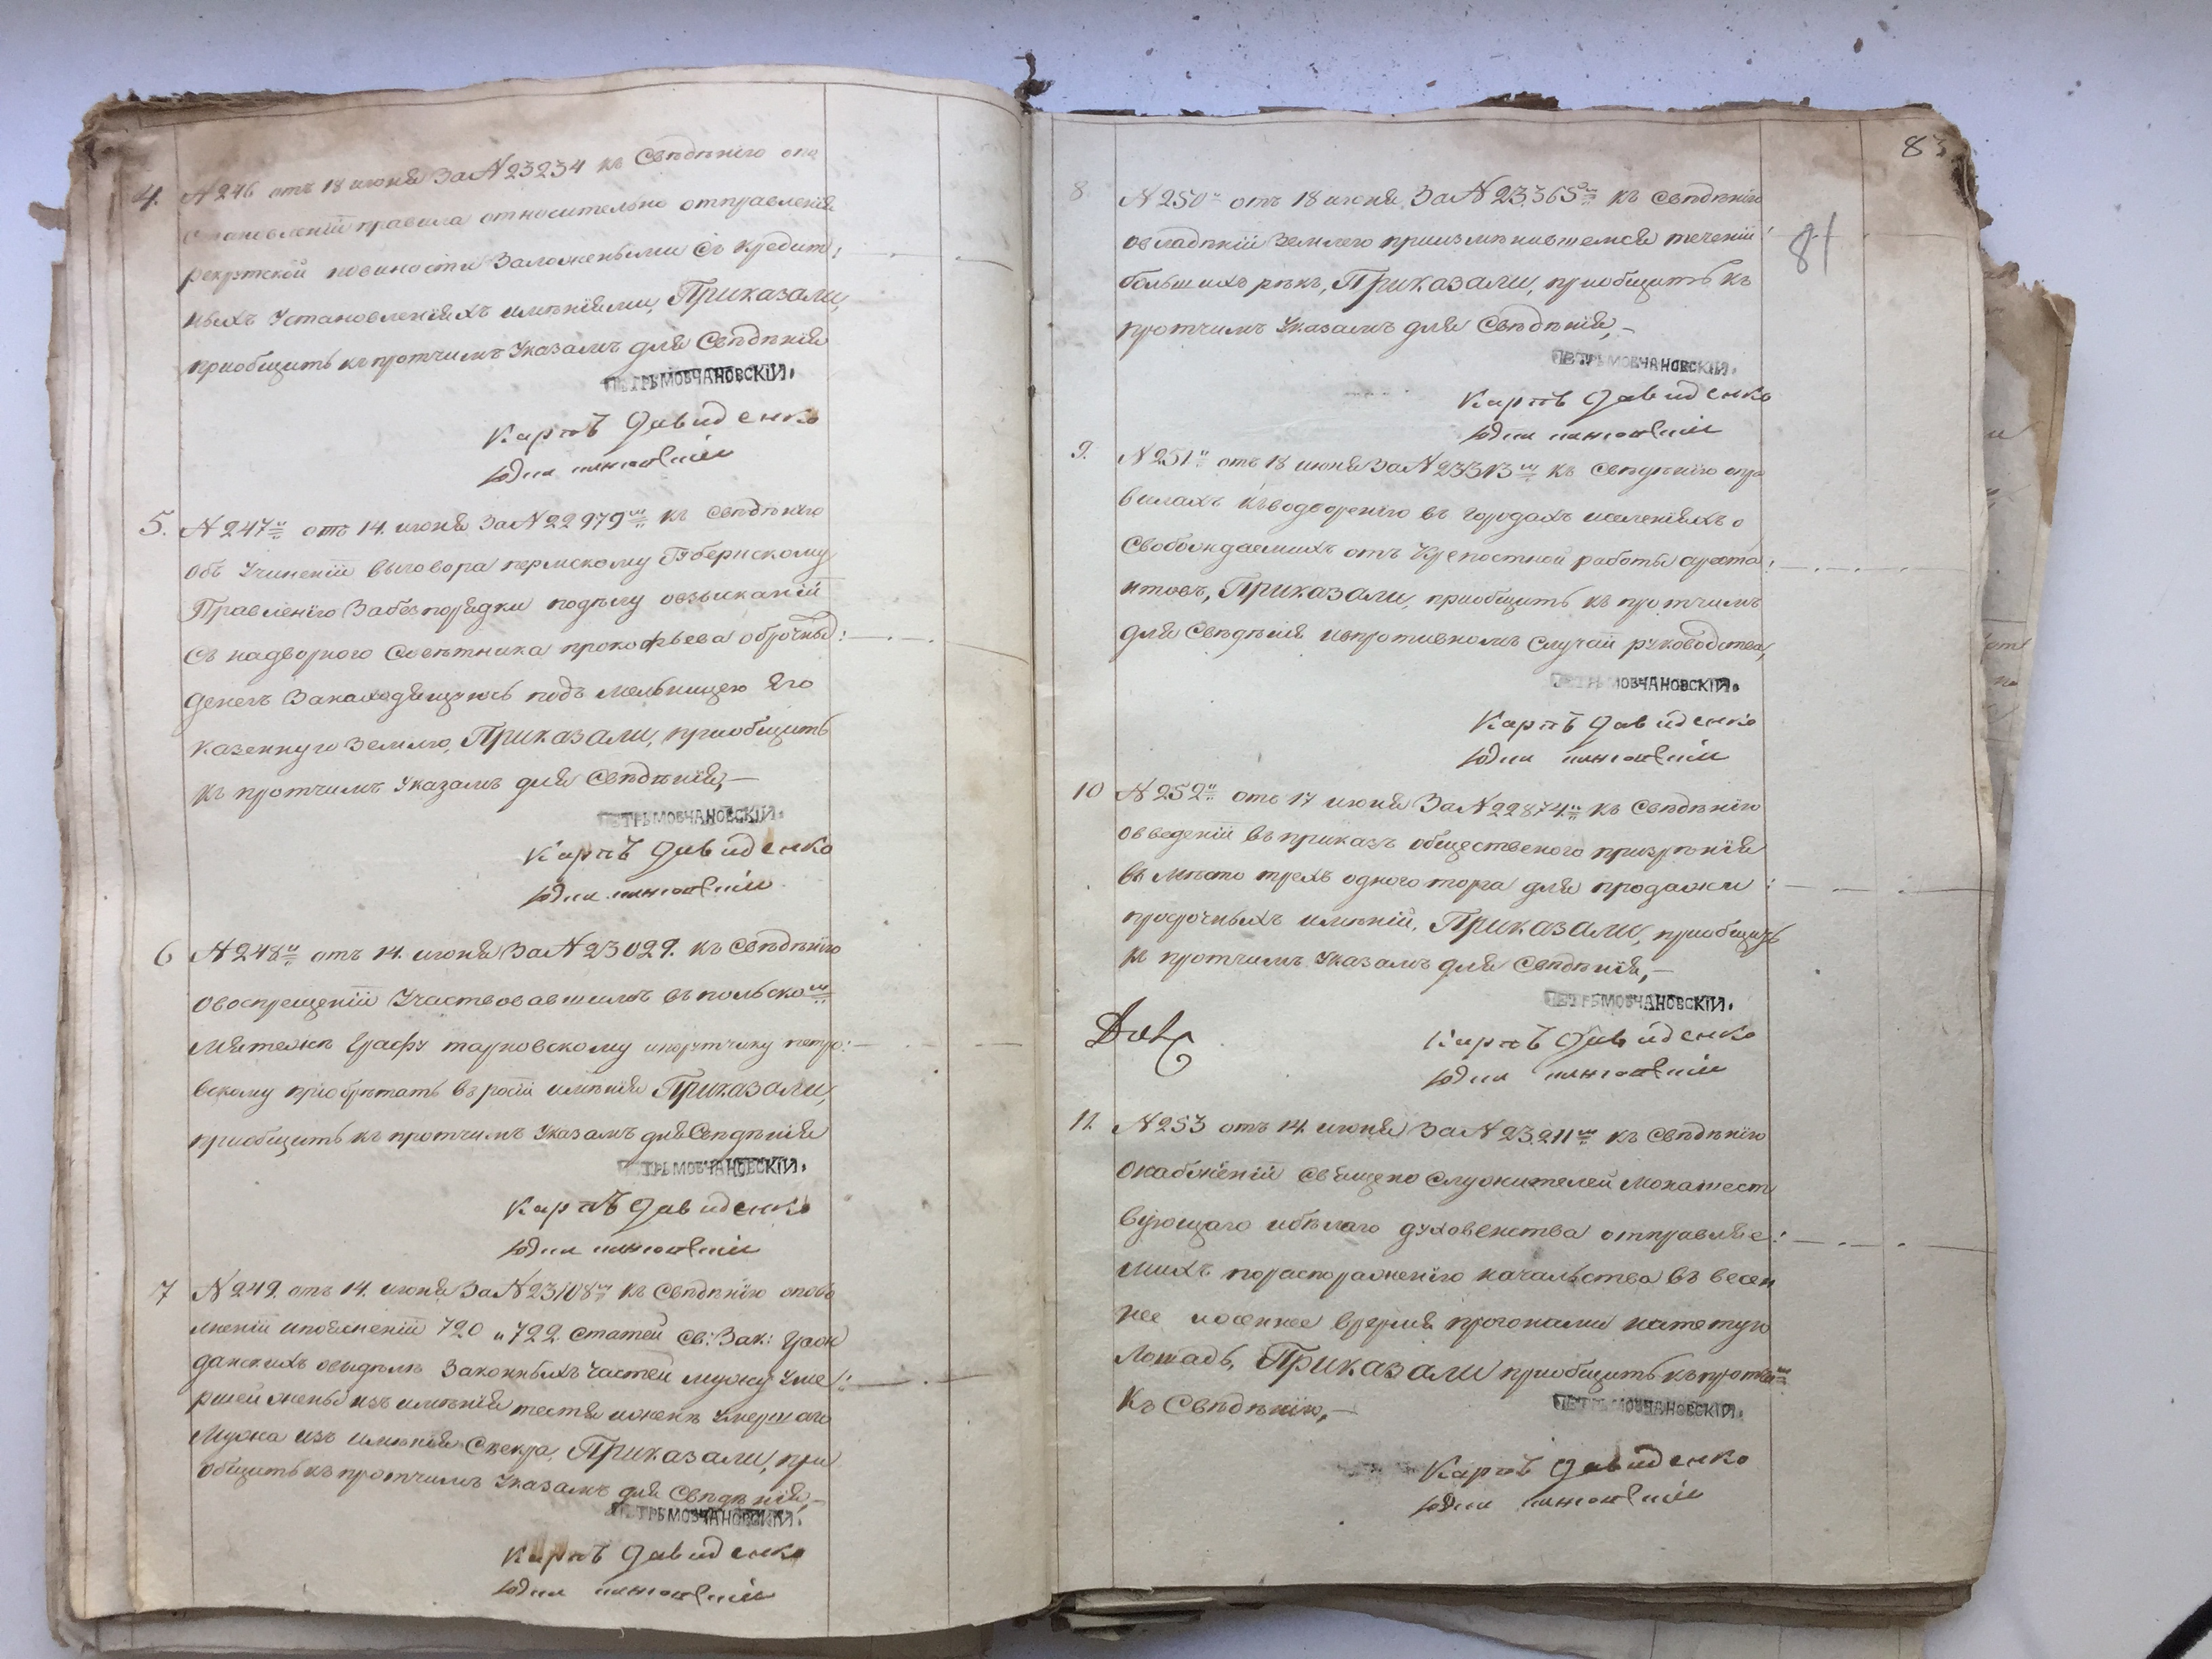 4. N 246 отъ 18 июня За N 23234 къ Свѣдѣнію опо
становленіи правила относительно отправленія
рекрутской повиности Заложеными съ кредит:
ныхъ Установленіяхъ имѣніями, Приказали,
приобщить къ протчимъ Указамъ для Свѣдѣнія
ПЕТРЪ МОВЧАНОВСКІЙ.
Карпъ Давиденко
5. N 247й отъ 14. июня За N 22979мъ къ свѣдѣнію
объ Учиненіи выговора пермскому Губернскому
Правленію За безпорядки поделу овзысканіи
Съ надворного Совѣтника прокофьева оброчныхъ:
денегъ За находящуюсь подъ мельницею Его
казенную землю, Приказали, приобщить
къ протчимъ Указамъ для Свѣдѣнія,—
ПЕТРЪ МОВЧАНОВСКІЙ.
Карпъ Давиденко
6 N 248й отъ 14. июня За N 23029. къ Свѣдѣнію
овоспрещеніи Участвовавшимъ въ польскомъ
Мятежѣ Графу тарновскому ипоручику петро:
вскому приобрѣтать въ росіи имѣнія Приказали,
приобщить къ протчимъ Указамъ для Свѣдѣнія
ПЕТРЪ МОВЧАНОВСКІЙ.
Карпъ Давиденко
7 N 249. отъ 14. июня За N 23108мъ къ Свѣдѣнію опопо
лненіи ипоясненіи 720 и 722 статей Св: Зак: Граж
данскихъ овыделѣ Законныхъ частей мужу Уме:
ршей жены изъ имѣнія тестя иженѣ Умершаго
Мужа изъ имѣнія Свекра, Приказали, при
общить къ протчимъ Указамъ для Свѣдѣнія,—
ПЕТРЪ МОВЧАНОВСКІЙ.
Карпъ Давиденко
83
81
8 N 250й отъ 18 июня За N 23,365мъ къ Свѣдѣнію
овладѣніи Землею приизмѣнившемся теченіи
большихъ рѣкъ, Приказали, приобщить къ
протчимъ Указамъ для Свѣдѣнія,—
ПЕТРЪ МОВЧАНОВСКІЙ.
Карпъ Давиденко
9. N 251й отъ 18 июня За N 23313мъ къ Свѣдѣнію опра
вилахъ къводворенію въ городахъ иселеніяхъ о
Свобождаемихъ отъ Крепостной работы ареста:
нтовъ, Приказали, приобщить къ протчимъ
для Свѣдѣнія ивпротивномъ случаи руководства,
ПЕТРЪ МОВЧАНОВСКІЙ.
Карпъ Давиденко
10 N 252й отъ 17 июня За N 22874й къ Свѣдѣнію
овведеніи въ приказъ общественого призрѣнія
въ Мѣсто трехъ одного торга для продажи:
просрочныхъ имѣній, Приказали, приобщить
къ протчимъ Указамъ для Свѣдѣнія,—
ПЕТРЪ МОВЧАНОВСКІЙ.
Карпъ Давиденко
11. N 253 отъ 14. июня За N 23,211мъ къ Свѣдѣнію
Онабженіи Священо Служителей Монашест
вующаго ибѣлаго духовенства отправляе:
Михъ пораспоряженію начальства въ весен
нее иосеннее время прогонами
Лошадь, Приказали приобщить къ протчимъ
Къ Свѣдѣнію,—
ПЕТРЪ МОВЧАНОВСКІЙ.
Карпъ Давиденко